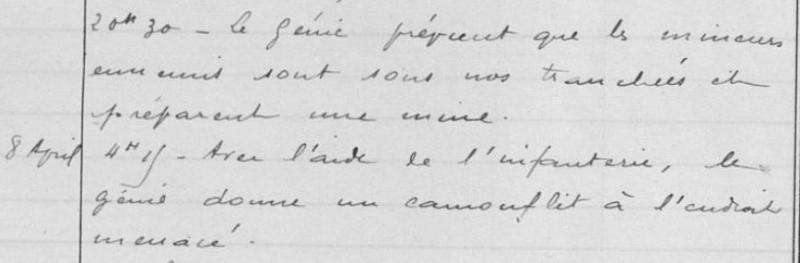 20h 30 - Le Génie prévient que les mineurs
ennemis sont sous nos tranchées et
préparent une mine.
8 April 4H 15 - Avec l'aide de l'infanterie, le
génie donne un camouflet à l'endroit
menacé.